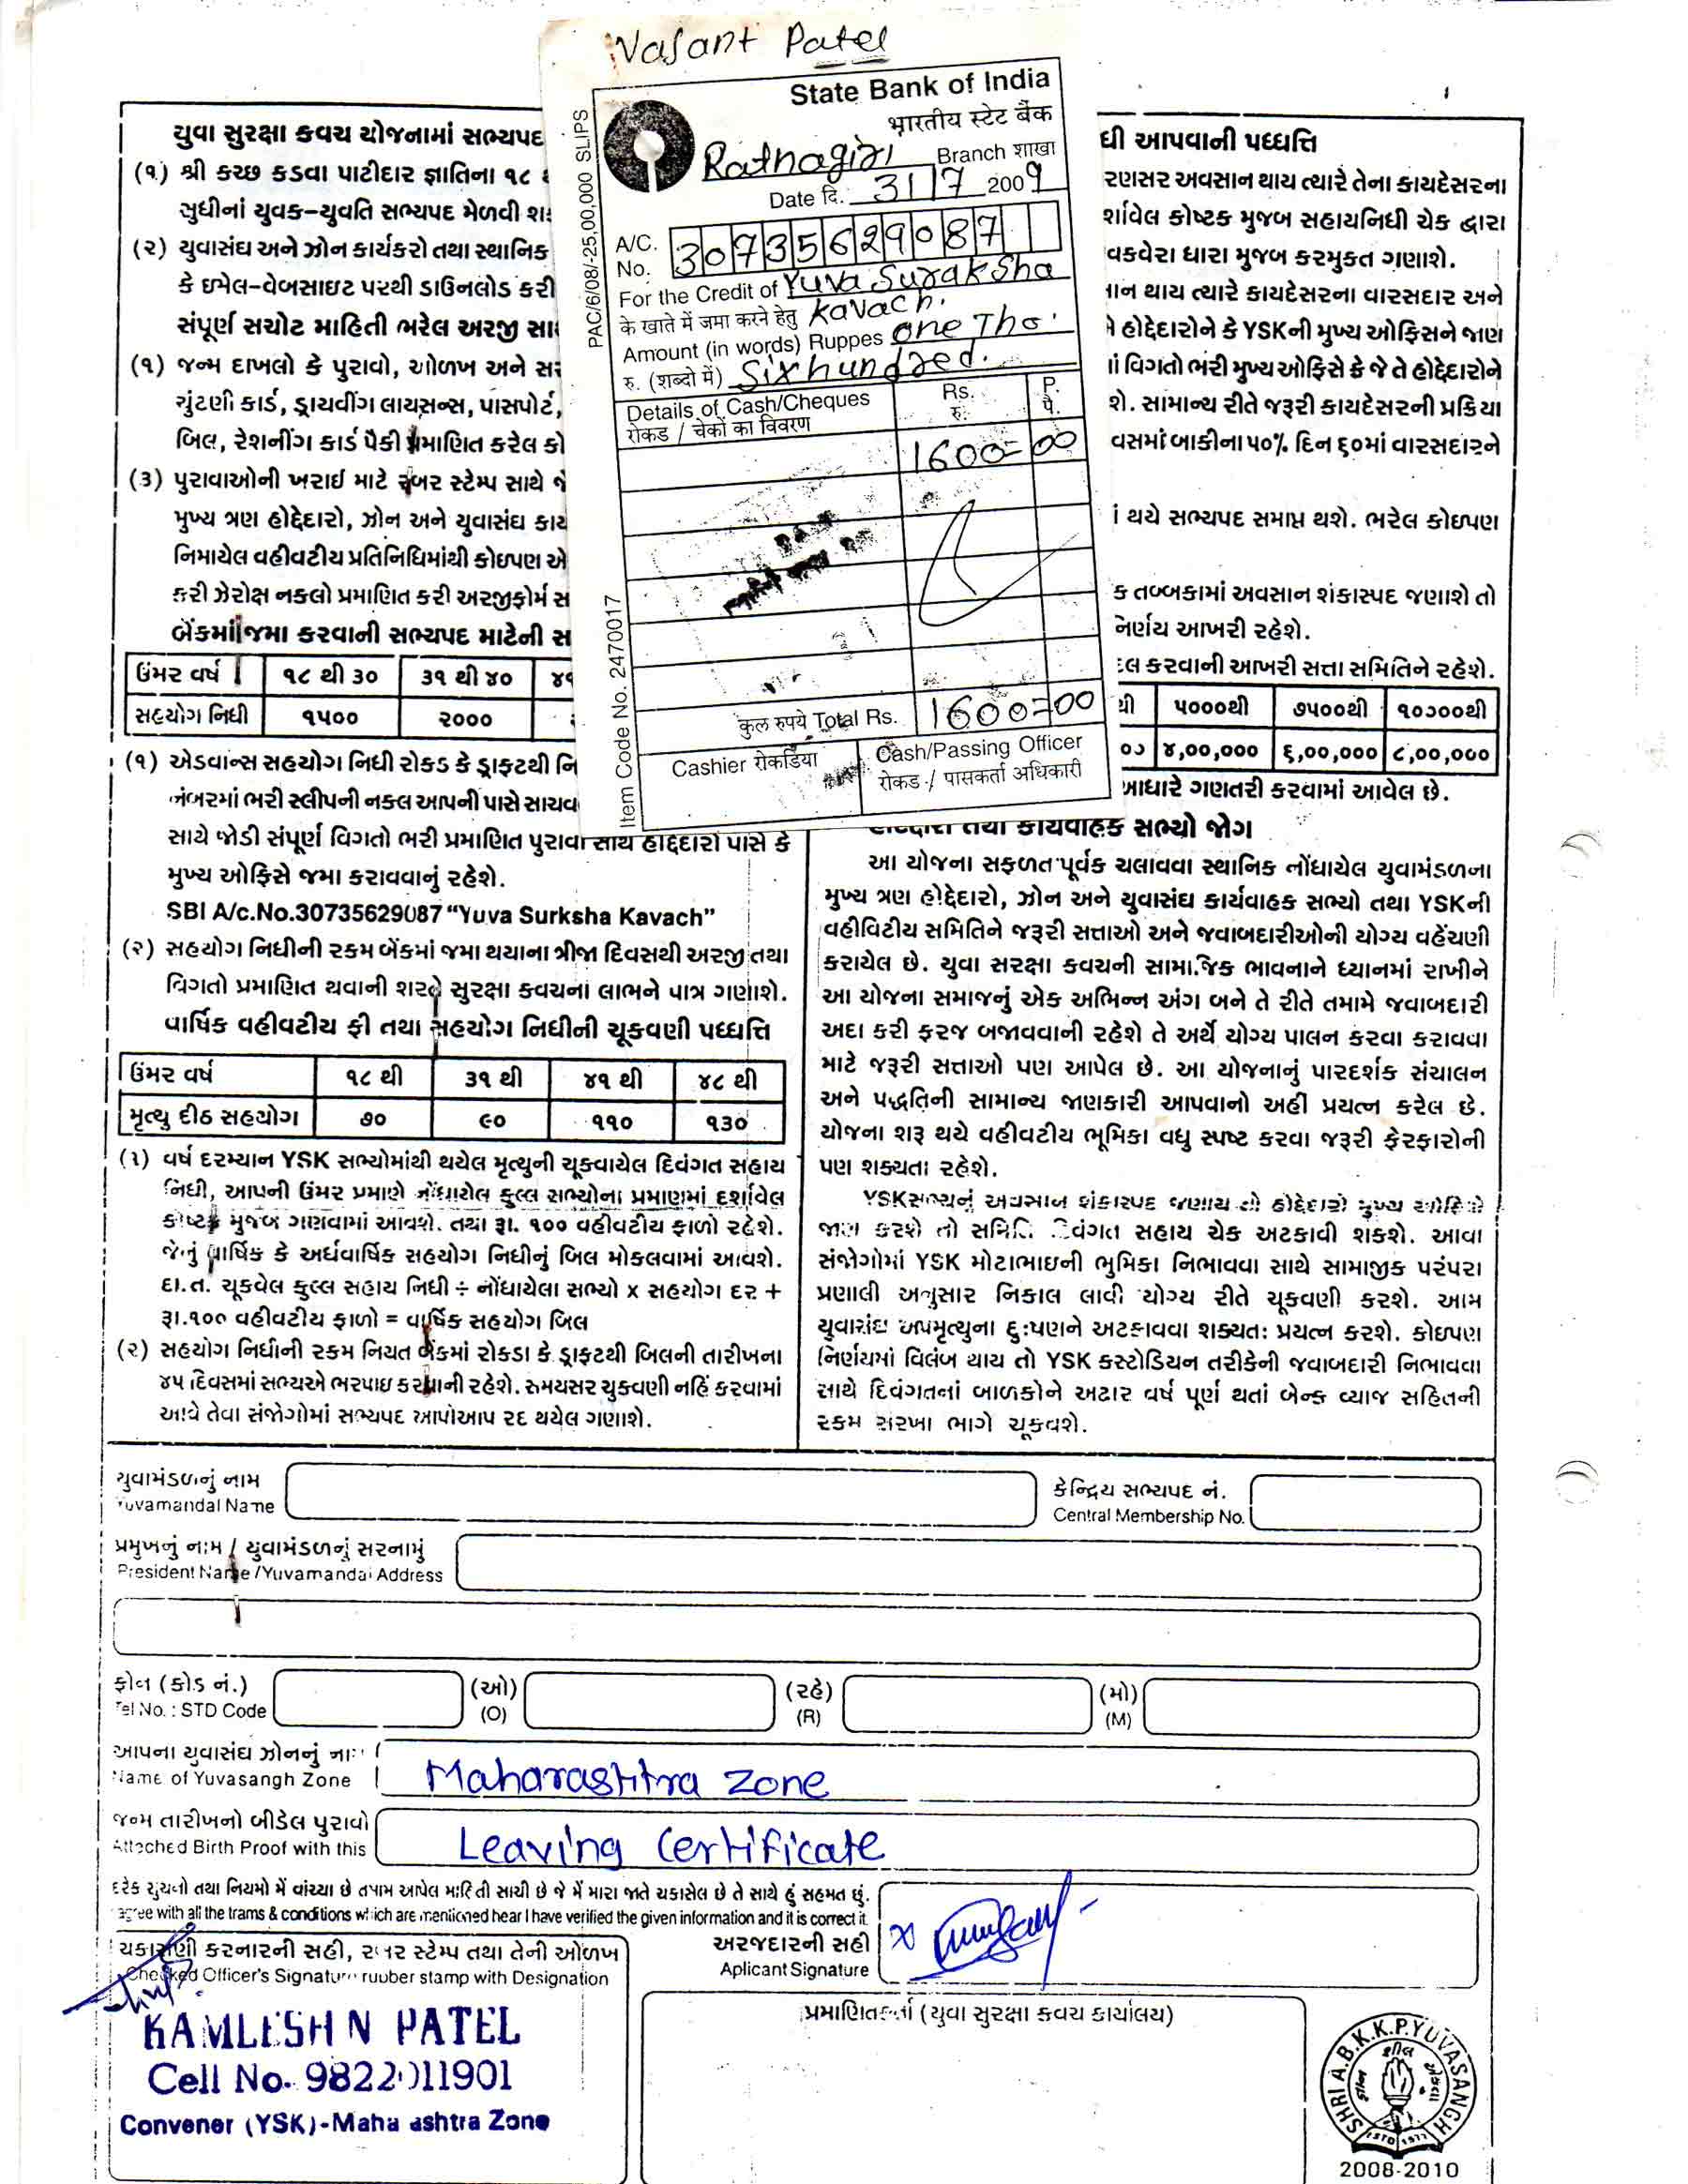 Vasant Patel
State Bank of India
भारतीय स्टेट बैंक
Ratnagiri Branch शाखा
Date दि. 31 7 2009
A/C. No. 30735629087
For the Credit of Yuva Suraksha
के खाते में जमा करने हेतु Kavach.
Amount (in words) Ruppes One Tho.
रु. (शब्दो में) Six hundred.
Details of Cash/Cheques Rs. P.
रोकड / चेकों का विवरण रु. पै.
1600=00
कुल रुपये Total Rs. 1600=00
Cashier रोकडिया Cash/Passing Officer
रोकड / पासकर्ता अधिकारी
PAC/6/08/-25,00,000 SLIPS
Item Code No. 2470017
યુવા સુરક્ષા કવચ યોજનામાં સભ્યપદ
(૧) શ્રી કચ્છ કડવા પાટીદાર જ્ઞાતિના ૧૮
સુધીનાં યુવક-યુવતિ સભ્યપદ મેળવી
(૨) યુવાસંઘ અને ઝોન કાર્યકરો તથા સ્થાનિક
કે ઇમેલ-વેબસાઇટ પરથી ડાઉનલોડ કરી
સંપૂર્ણ સચોટ માહિતી ભરેલ અરજી
(૧) જન્મ દાખલો કે પુરાવો, ઓળખ અને
ચુંટણી કાર્ડ, ડ્રાયવીંગ લાયસન્સ, પાસપોર્ટ,
બિલ, રેશનીંગ કાર્ડ પૈકી પ્રમાણિત કરેલ
(૩) પુરાવાઓની ખરાઇ માટે રબર સ્ટેમ્પ સાથે
મુખ્ય ત્રણ હોદ્દેદારો, ઝોન અને યુવાસંઘ
નિમાયેલ વહીવટીય પ્રતિનિધિમાંથી કોઇપણ
કરી ઝેરોક્ષ નકલો પ્રમાણિત કરી અરજીફોર્મ
બેંકમાં જમા કરવાની સભ્યપદ માટેની
ઉંમર વર્ષ ૧૮ થી ૩૦ ૩૧ થી ૪૦
સહયોગ નિધી ૧૫૦૦ ૨૦૦૦
(૧) એડવાન્સ સહયોગ નિધી રોકડ કે ડ્રાફટથી
નંબરમાં ભરી સ્લીપની નકલ આપની પાસે
સાથે જોડી સંપૂર્ણ વિગતો ભરી પ્રમાણિત પુરાવા સાથે હોદ્દેદારો પાસે કે
મુખ્ય ઓફિસે જમા કરાવવાનું રહેશે.
SBI A/c.No.30735629087 “Yuva Surksha Kavach”
(૨) સહયોગ નિધીની રકમ બેંકમાં જમા થયાના ત્રીજા દિવસથી અરજી તથા
વિગતો પ્રમાણિત થવાની શરતે સુરક્ષા કવચના લાભને પાત્ર ગણાશે.
વાર્ષિક વહીવટીય ફી તથા સહયોગ નિધીની ચૂકવણી પધ્ધત્તિ
ઉંમર વર્ષ ૧૮ થી ૩૧ થી ૪૧ થી ૪૮ થી
મૃત્યુ દીઠ સહયોગ ૭૦ ૯૦ ૧૧૦ ૧૩૦
(૧) વર્ષ દરમ્યાન YSK સભ્યોમાંથી થયેલ મૃત્યુની ચૂકવાયેલ દિવંગત સહાય
નિધી, આપની ઉંમર પ્રમાણે નોંધાયેલ કુલ્લ સભ્યોના પ્રમાણમાં દર્શાવેલ
કોષ્ટક મુજબ ગણવામાં આવશે. તથા રૂા. ૧૦૦ વહીવટીય ફાળો રહેશે.
જેનું વાર્ષિક કે અર્ધવાર્ષિક સહયોગ નિધીનું બિલ મોકલવામાં આવશે.
દા.ત. ચૂકવેલ કુલ્લ સહાય નિધી ÷ નોંધાયેલા સભ્યો x સહયોગ દર +
રૂા.૧૦૦ વહીવટીય ફાળો = વાર્ષિક સહયોગ બિલ
(૨) સહયોગ નિધીની રકમ નિયત બેંકમાં રોકડા કે ડ્રાફટથી બિલની તારીખના
૪૫ દિવસમાં સભ્યએ ભરપાઇ કરવાની રહેશે. સમયસર ચુકવણી નહિં કરવામાં
આવે તેવા સંજોગોમાં સભ્યપદ આપોઆપ રદ થયેલ ગણાશે.
આપવાની પધ્ધત્તિ
અવસાન થાય ત્યારે તેના કાયદેસરના
કોષ્ટક મુજબ સહાયનિધી ચેક દ્વારા
ધારા મુજબ કરમુકત ગણાશે.
થાય ત્યારે કાયદેસરના વારસદાર અને
હોદ્દેદારોને કે YSKની મુખ્ય ઓફિસને જાણ
વિગતો ભરી મુખ્ય ઓફિસે કે જે તે હોદ્દેદારોને
શે. સામાન્ય રીતે જરૂરી કાયદેસરની પ્રક્રિયા
બાકીના ૫૦% દિન ૬૦માં વારસદારને
થયે સભ્યપદ સમાપ્ત થશે. ભરેલ કોઇપણ
તબ્બકામાં અવસાન શંકાસ્પદ જણાશે તો
નિર્ણય આખરી રહેશે.
કરવાની આખરી સત્તા સમિતિને રહેશે.
થી ૫૦૦૦થી ૭૫૦૦થી ૧૦૦૦૦થી
૪,૦૦,૦૦૦ ૬,૦૦,૦૦૦ ૮,૦૦,૦૦૦
આધારે ગણતરી કરવામાં આવેલ છે.
હોદ્દેદારો તથા કાર્યવાહક સભ્યો જોગ
આ યોજના સફળતાપૂર્વક ચલાવવા સ્થાનિક નોંધાયેલ યુવામંડળના
મુખ્ય ત્રણ હોદ્દેદારો, ઝોન અને યુવાસંઘ કાર્યવાહક સભ્યો તથા YSKની
વહીવિટીય સમિતિને જરૂરી સત્તાઓ અને જવાબદારીઓની યોગ્ય વહેંચણી
કરાયેલ છે. યુવા સરક્ષા કવચની સામાજિક ભાવનાને ધ્યાનમાં રાખીને
આ યોજના સમાજનું એક અભિન્ન અંગ બને તે રીતે તમામે જવાબદારી
અદા કરી ફરજ બજાવવાની રહેશે તે અર્થે યોગ્ય પાલન કરવા કરાવવા
માટે જરૂરી સત્તાઓ પણ આપેલ છે. આ યોજનાનું પારદર્શક સંચાલન
અને પદ્ધતિની સામાન્ય જાણકારી આપવાનો અહીં પ્રયત્ન કરેલ છે.
યોજના શરૂ થયે વહીવટીય ભૂમિકા વધુ સ્પષ્ટ કરવા જરૂરી ફેરફારોની
પણ શક્યતા રહેશે.
YSKસભ્યનું અવસાન શંકાસ્પદ જણાય તો હોદ્દેદારો મુખ્ય ઓફિસે
જાણ કરશે તો સમિતિ દિવંગત સહાય ચેક અટકાવી શકશે. આવા
સંજોગોમાં YSK મોટાભાઇની ભુમિકા નિભાવવા સાથે સામાજીક પરંપરા
પ્રણાલી અનુસાર નિકાલ લાવી યોગ્ય રીતે ચૂકવણી કરશે. આમ
યુવાસંઘ અપમૃત્યુના દુઃષણને અટકાવવા શક્યતઃ પ્રયત્ન કરશે. કોઇપણ
નિર્ણયમાં વિલંબ થાય તો YSK કસ્ટોડિયન તરીકેની જવાબદારી નિભાવવા
સાથે દિવંગતનાં બાળકોને અઢાર વર્ષ પૂર્ણ થતાં બેન્ક વ્યાજ સહિતની
રકમ સરખા ભાગે ચૂકવશે.
યુવામંડળનું નામ કેન્દ્રિય સભ્યપદ નં.
Yuvamandal Name Central Membership No.
પ્રમુખનું નામ / યુવામંડળનું સરનામું
President Name /Yuvamandal Address
ફોન (કોડ નં.) (ઓ) (રહે) (મો)
Tel No. : STD Code (O) (R) (M)
આપના યુવાસંઘ ઝોનનું નામ
Name of Yuvasangh Zone Maharashtra Zone
જન્મ તારીખનો બીડેલ પુરાવો
Attached Birth Proof with this Leaving Certificate
દરેક સુચનો તથા નિયમો મેં વાંચ્યા છે તમામ આપેલ માહિતી સાચી છે જે મેં મારા જાતે ચકાસેલ છે તે સાથે હું સહમત છું.
agree with all the trams & conditions which are mentioned hear I have verified the given information and it is correct it.
ચકાસણી કરનારની સહી, રબર સ્ટેમ્પ તથા તેની ઓળખ
Checked Officer's Signature ruuber stamp with Designation
અરજદારની સહી
Aplicant Signature
KAMLESH N PATEL
Cell No. 9822011901
Convener (YSK)-Maharashtra Zone
પ્રમાણિતકર્તા (યુવા સુરક્ષા કવચ કાર્યાલય)
SHRI A.B.K.K.P.YUVASANGH
ESTD 1977
2008-2010